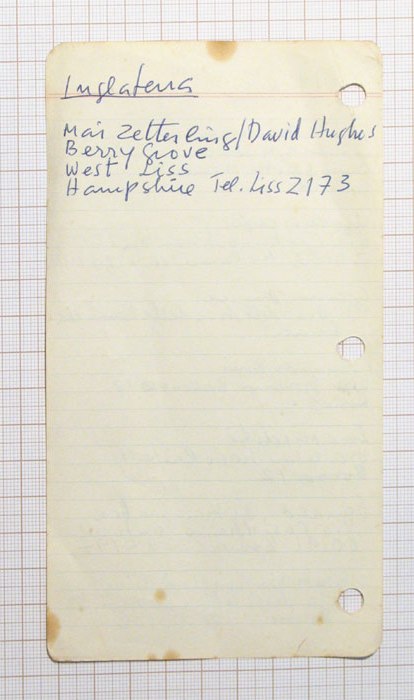 Inglaterra
Mai Zetterling/David Hughes
Berry Grove
West Liss
Hampshire Tel. Liss 2173